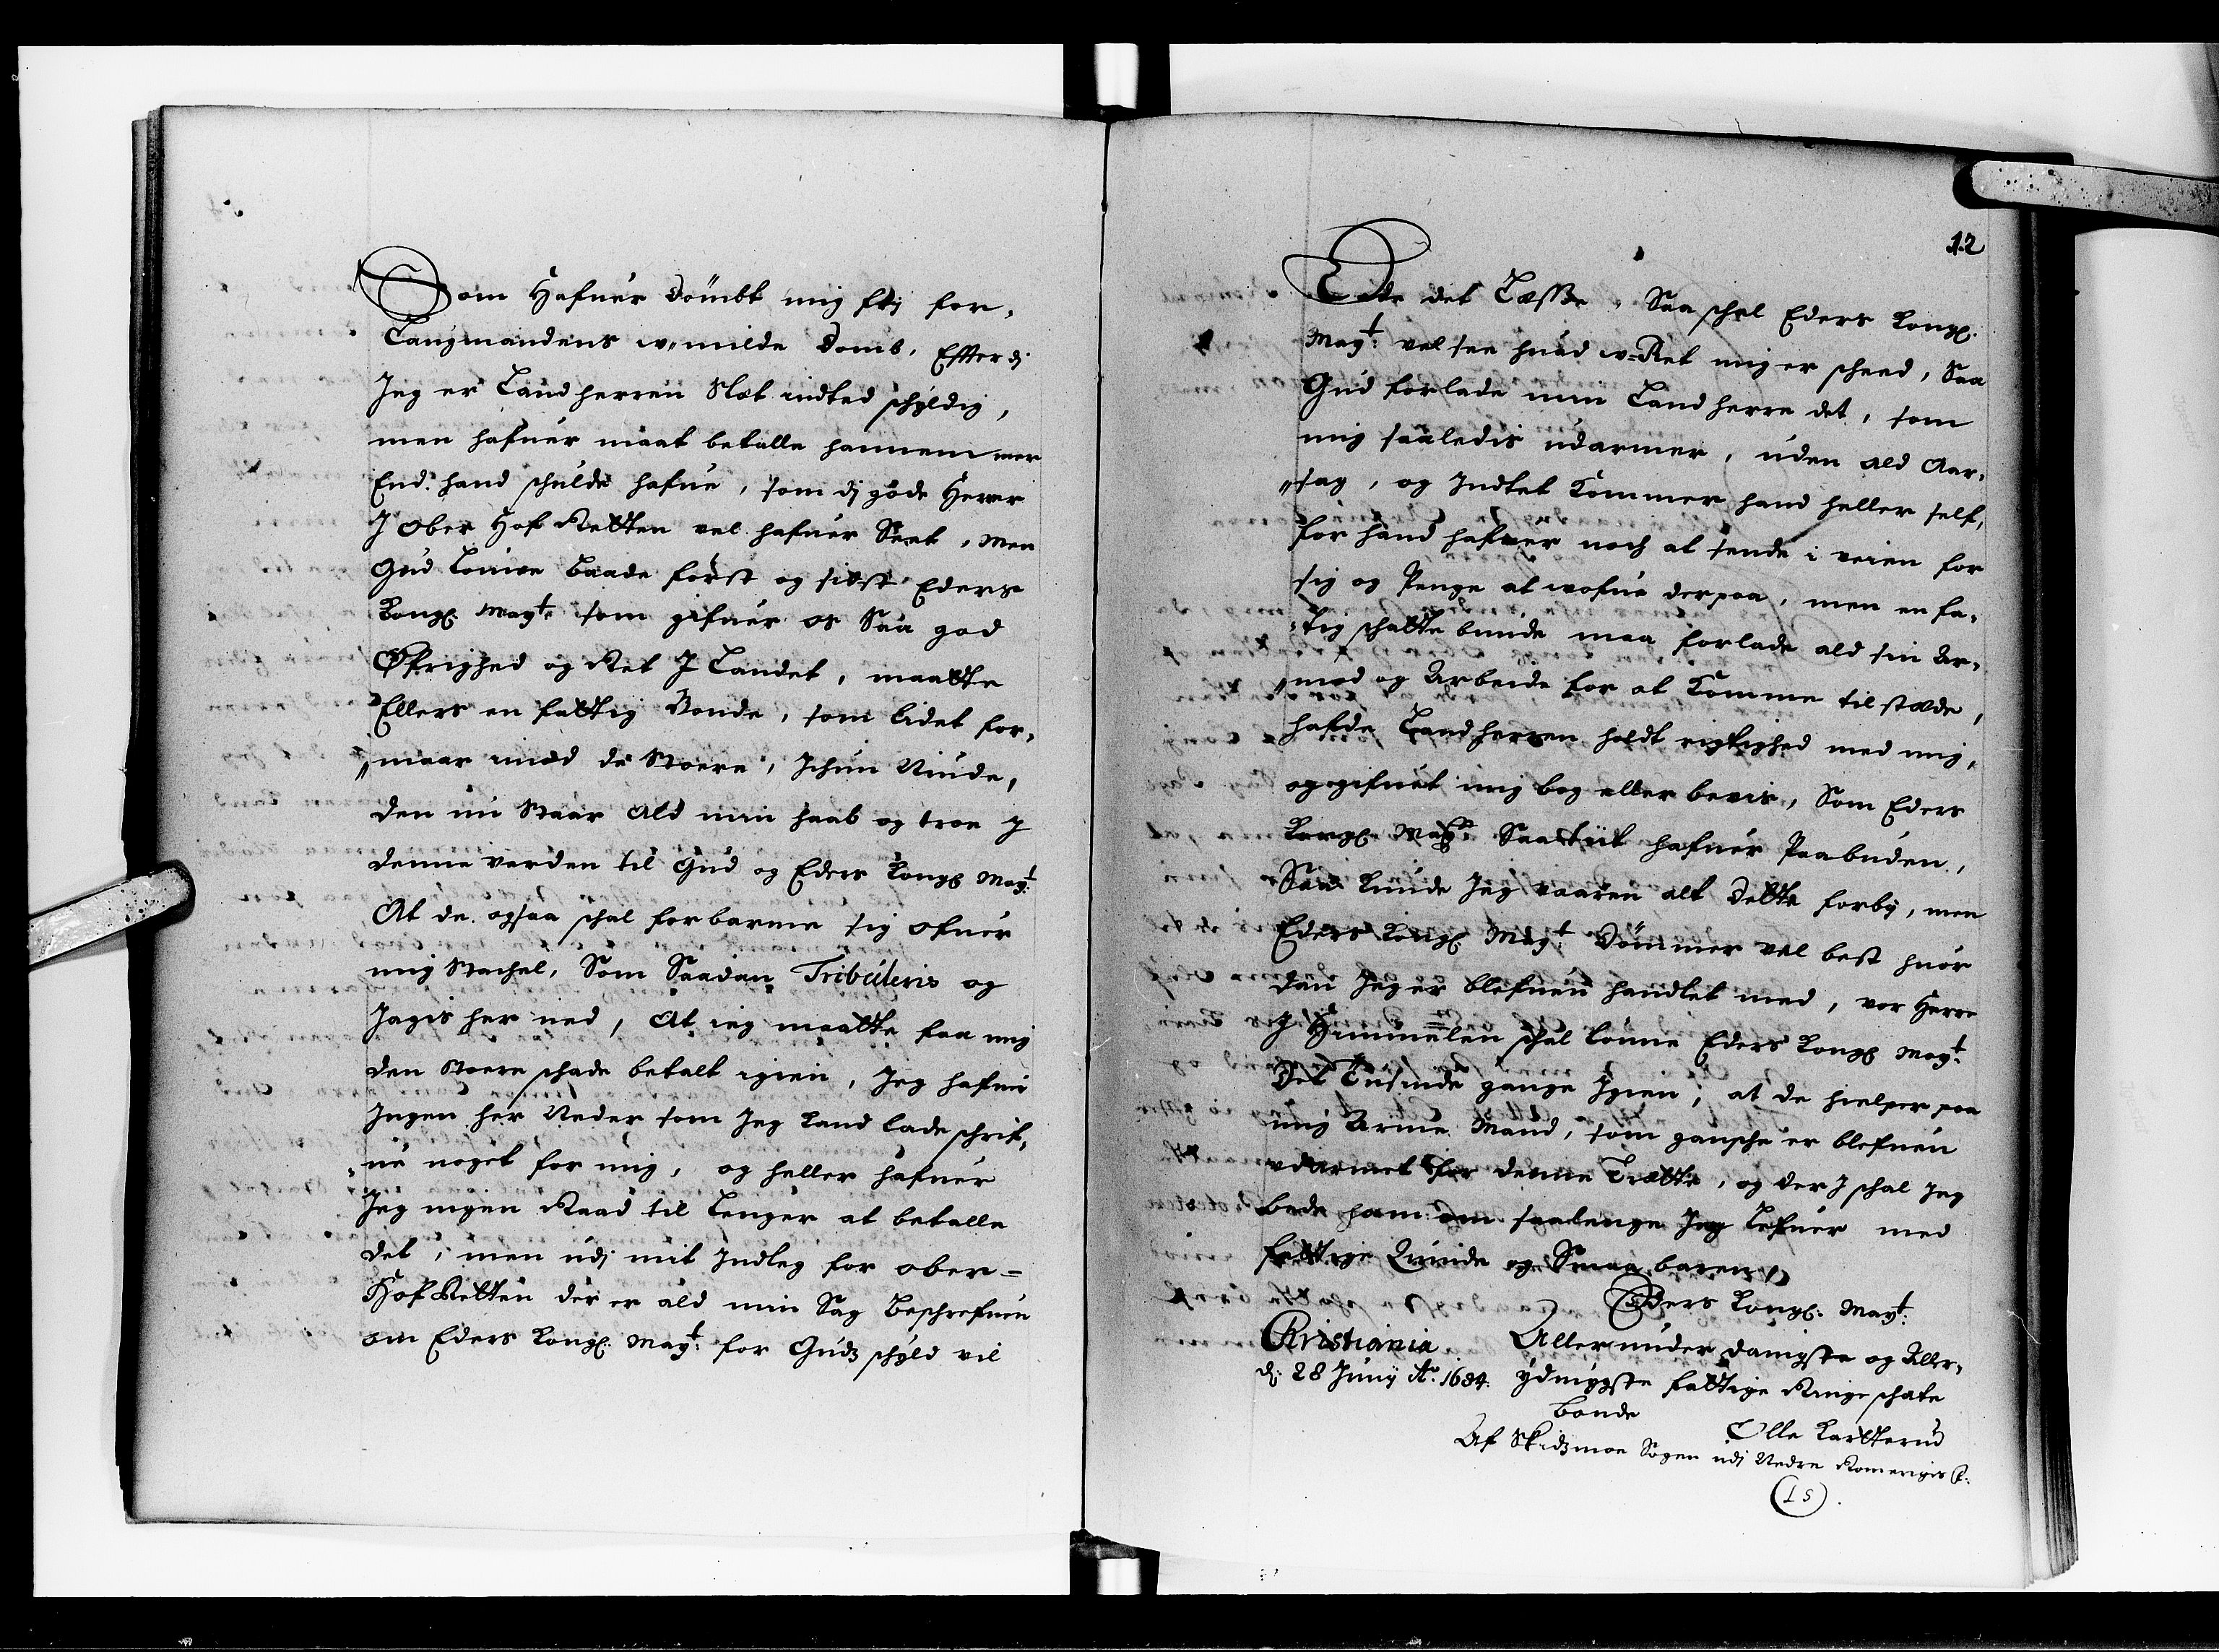 Som Hafuer dömbt mig frj for,
Laugmandens u-milde Domb, Efterdj
Jeg er Landherren Slet indted schyldig,
men hafuer maat betalle hannem mer
End hand schulde hafue, som dj gode Herrer
J Ober Hof Retten vel hafuer Seet, Men
Gud Lönne baade först og sidst Eders
Kongl. Mayt. som gifuer os Saa god
Øfrighed og Ret J Landet, maatte
Ellers en fattig Bonde, som lidet for,
„maar imod de Stoere, Jchun Vinde,
den nu Staar Ald min haab og troe J
denne verden til Gud og Eders Kongl Mayt:
At de ogsaa schal forbarme sig ofuer
mig Stachel, Som Saadan Tribuleris og
Jagis her ned, At ieg maatte faa mig
den Stoere schade betalt igien, Jeg hafuer
Jngen her Neder som Jeg kand lade schrif,
„ue noget for mig, og heller hafuer
Jeg ingen Raad til Lenger at betalle
det, men udj mit Jndleg for ober=
Hof Retten der er ald min Sag Beschrefuen
om Eders Kongl: Mayt: for Gudz schyld vil
12
Lade det Læsse, Saa schal Eders Kongl.
Mayt: vel see huad u=Ret mig er scheed, Saa
Gud forlade min Landherre det, som
mig saaledis udarmer, uden ald Aar,
„sag, og Jndtet Kommer hand heller self,
for hand hafuer noch at sende i veien for
sig og Penge at vofue derpaa, men en fa,
„tig schatte bunde maa forlade ald sin Ar,
„mod og Arbeide for at Komme tilstæde,
hafde Landherren holdt rigtighed med mig,
og gifuet mig bog eller bevis, Som Eders
Kongl. Mayt: Saa tiit hafuer Paabuden,
Saa kunde Jeg vaaren alt dette forby, men
Eders Kongl. Mayt: Dömmer vel best huor
dan Jeg er blefuen handlet med, vor Herre
J Himmelen schal lönne Eders Kongl Mayt:
det Tusinde gange Jgien, at de hielper paa
mig Arme Mand, som gansche er blefuen
udarmet for denne Trætte, og der J schal Jeg
bede ham om saalenge Jeg lefuer med
fattige Quinde og Smaa baren,
Eders Kongl: Mayt:
Christiania
d: 28 Junij Ao. 1684.
Allerunderdanigste og Aller,
ydmygste fattige Ringe schate
Bonde
Olle Kartterud
Af Skidzmoe Sogen udj Nedre Romerigis
(L S)